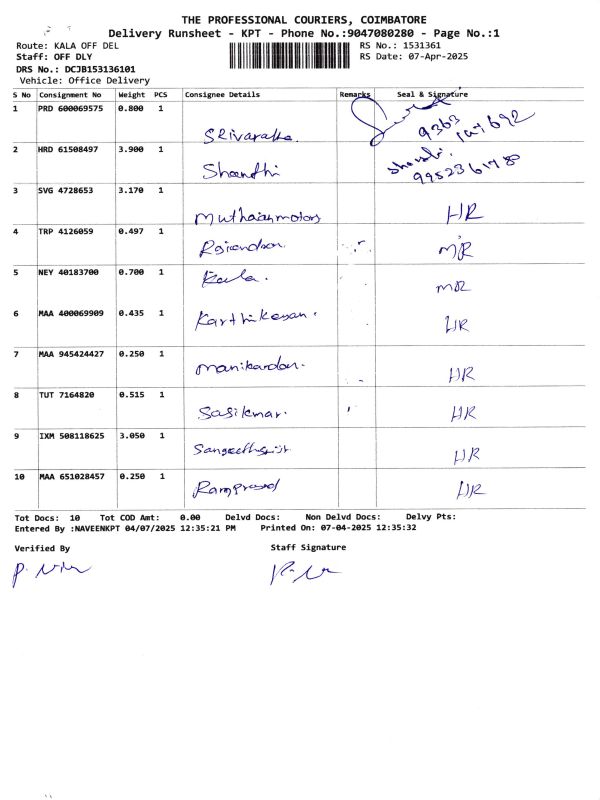 THE PROFESSIONAL COURIERS, COIMBATORE
Delivery Runsheet - KPT - Phone No.:9047080280 - Page No.:1
Route: KALA OFF DEL RS No.: 1531361
Staff: OFF DLY RS Date: 07-Apr-2025
DRS No.: DCJB153136101
Vehicle: Office Delivery
S No Consignment No Weight PCS Consignee Details Remarks Seal & Signature
1 PRD 600069575 0.800 1 9363
2 HRD 61508497 3.900 1 Shanthi 9952361478
3 SVG 4728653 3.170 1 HR
4 TRP 4126059 0.497 1 MR
5 NEY 40183700 0.700 1 Kala. MR
6 MAA 400069909 0.435 1 Karthikeyan. HR
7 MAA 945424427 0.250 1 Manikandan. HR
8 TUT 7164820 0.515 1 Sasikmar. HR
9 IXM 508118625 3.050 1 HR
10 MAA 651028457 0.250 1 Ramprasad HR
Tot Docs: 10 Tot COD Amt: 0.00 Delvd Docs: Non Delvd Docs: Delvy Pts:
Entered By :NAVEENKPT 04/07/2025 12:35:21 PM Printed On: 07-04-2025 12:35:32
Verified By Staff Signature